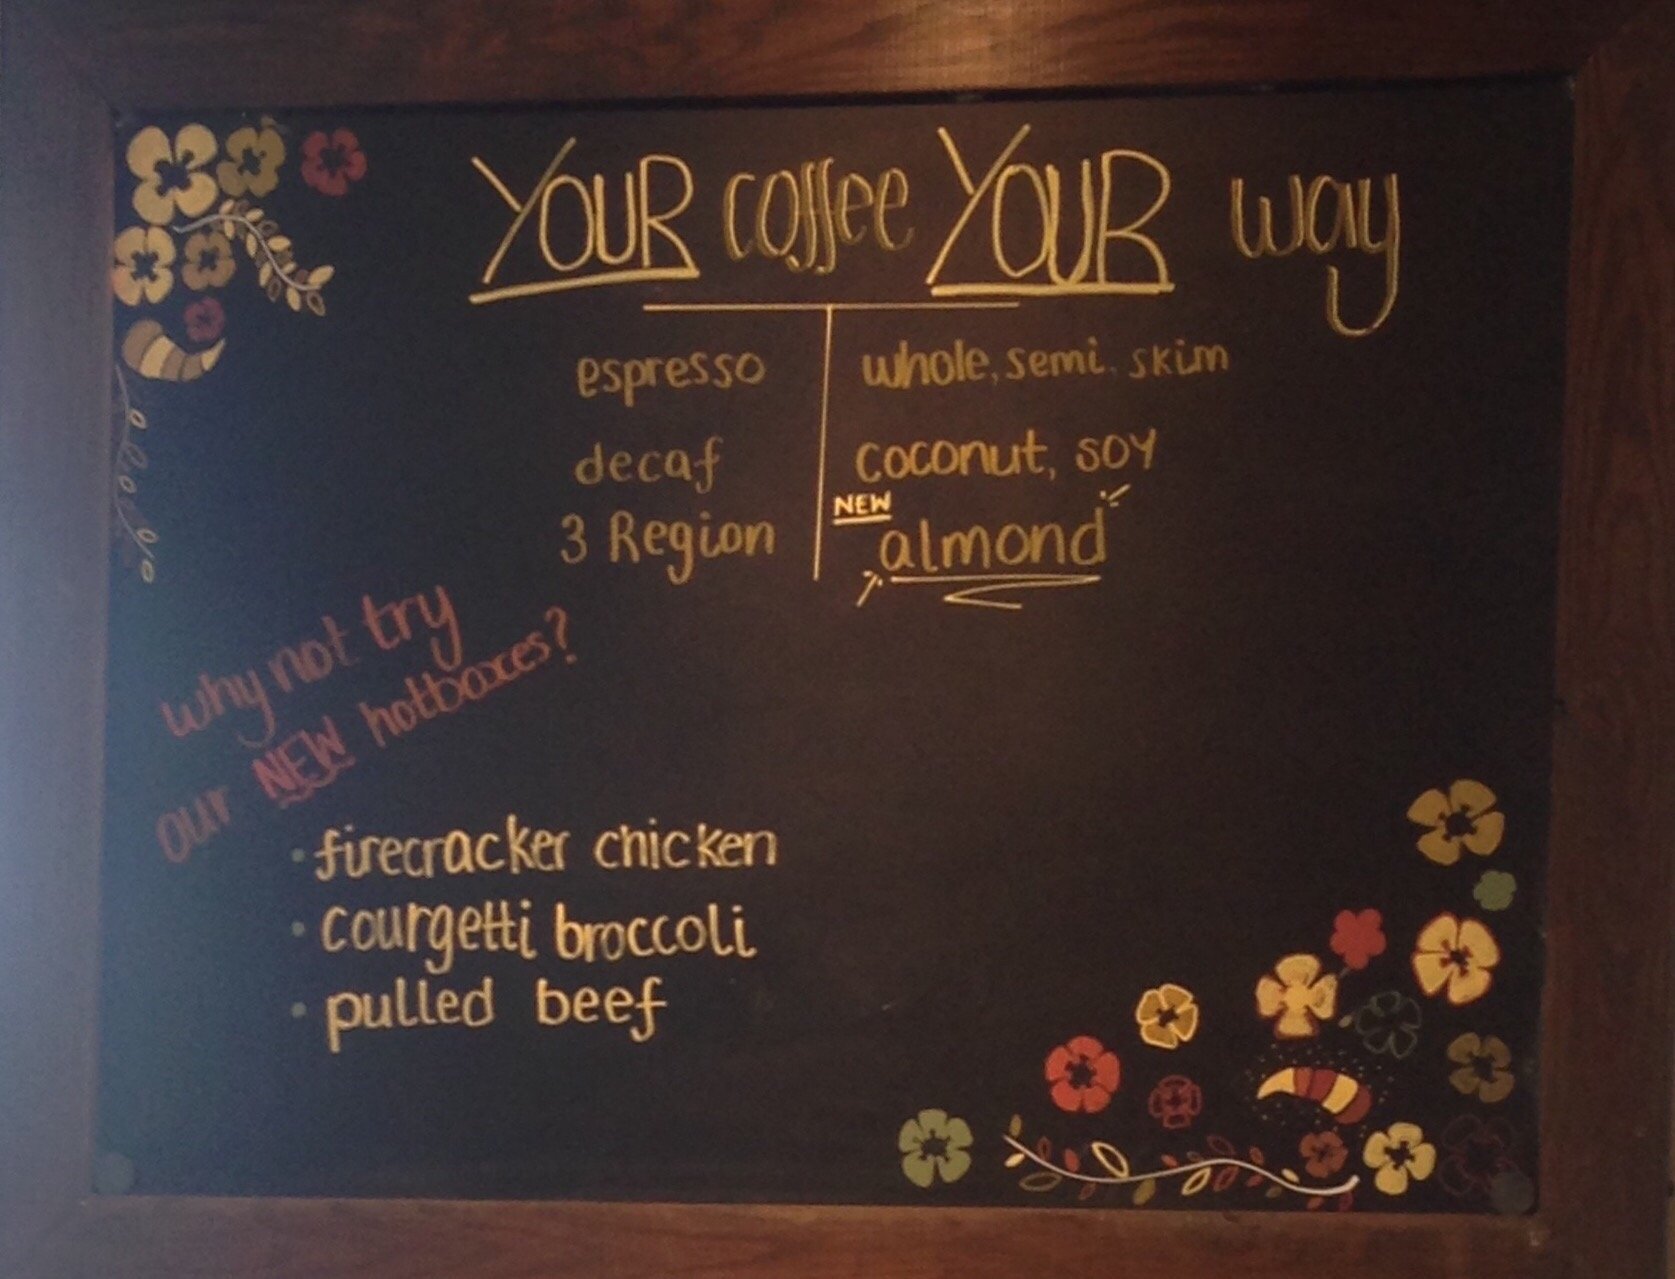 YOUR coffee YOUR way
espresso
decaf
3 Region
whole, semi, skim
coconut, soy
NEW
almond
why not try
our NEW hotboxes?
· firecracker chicken
· courgetti broccoli
· pulled beef